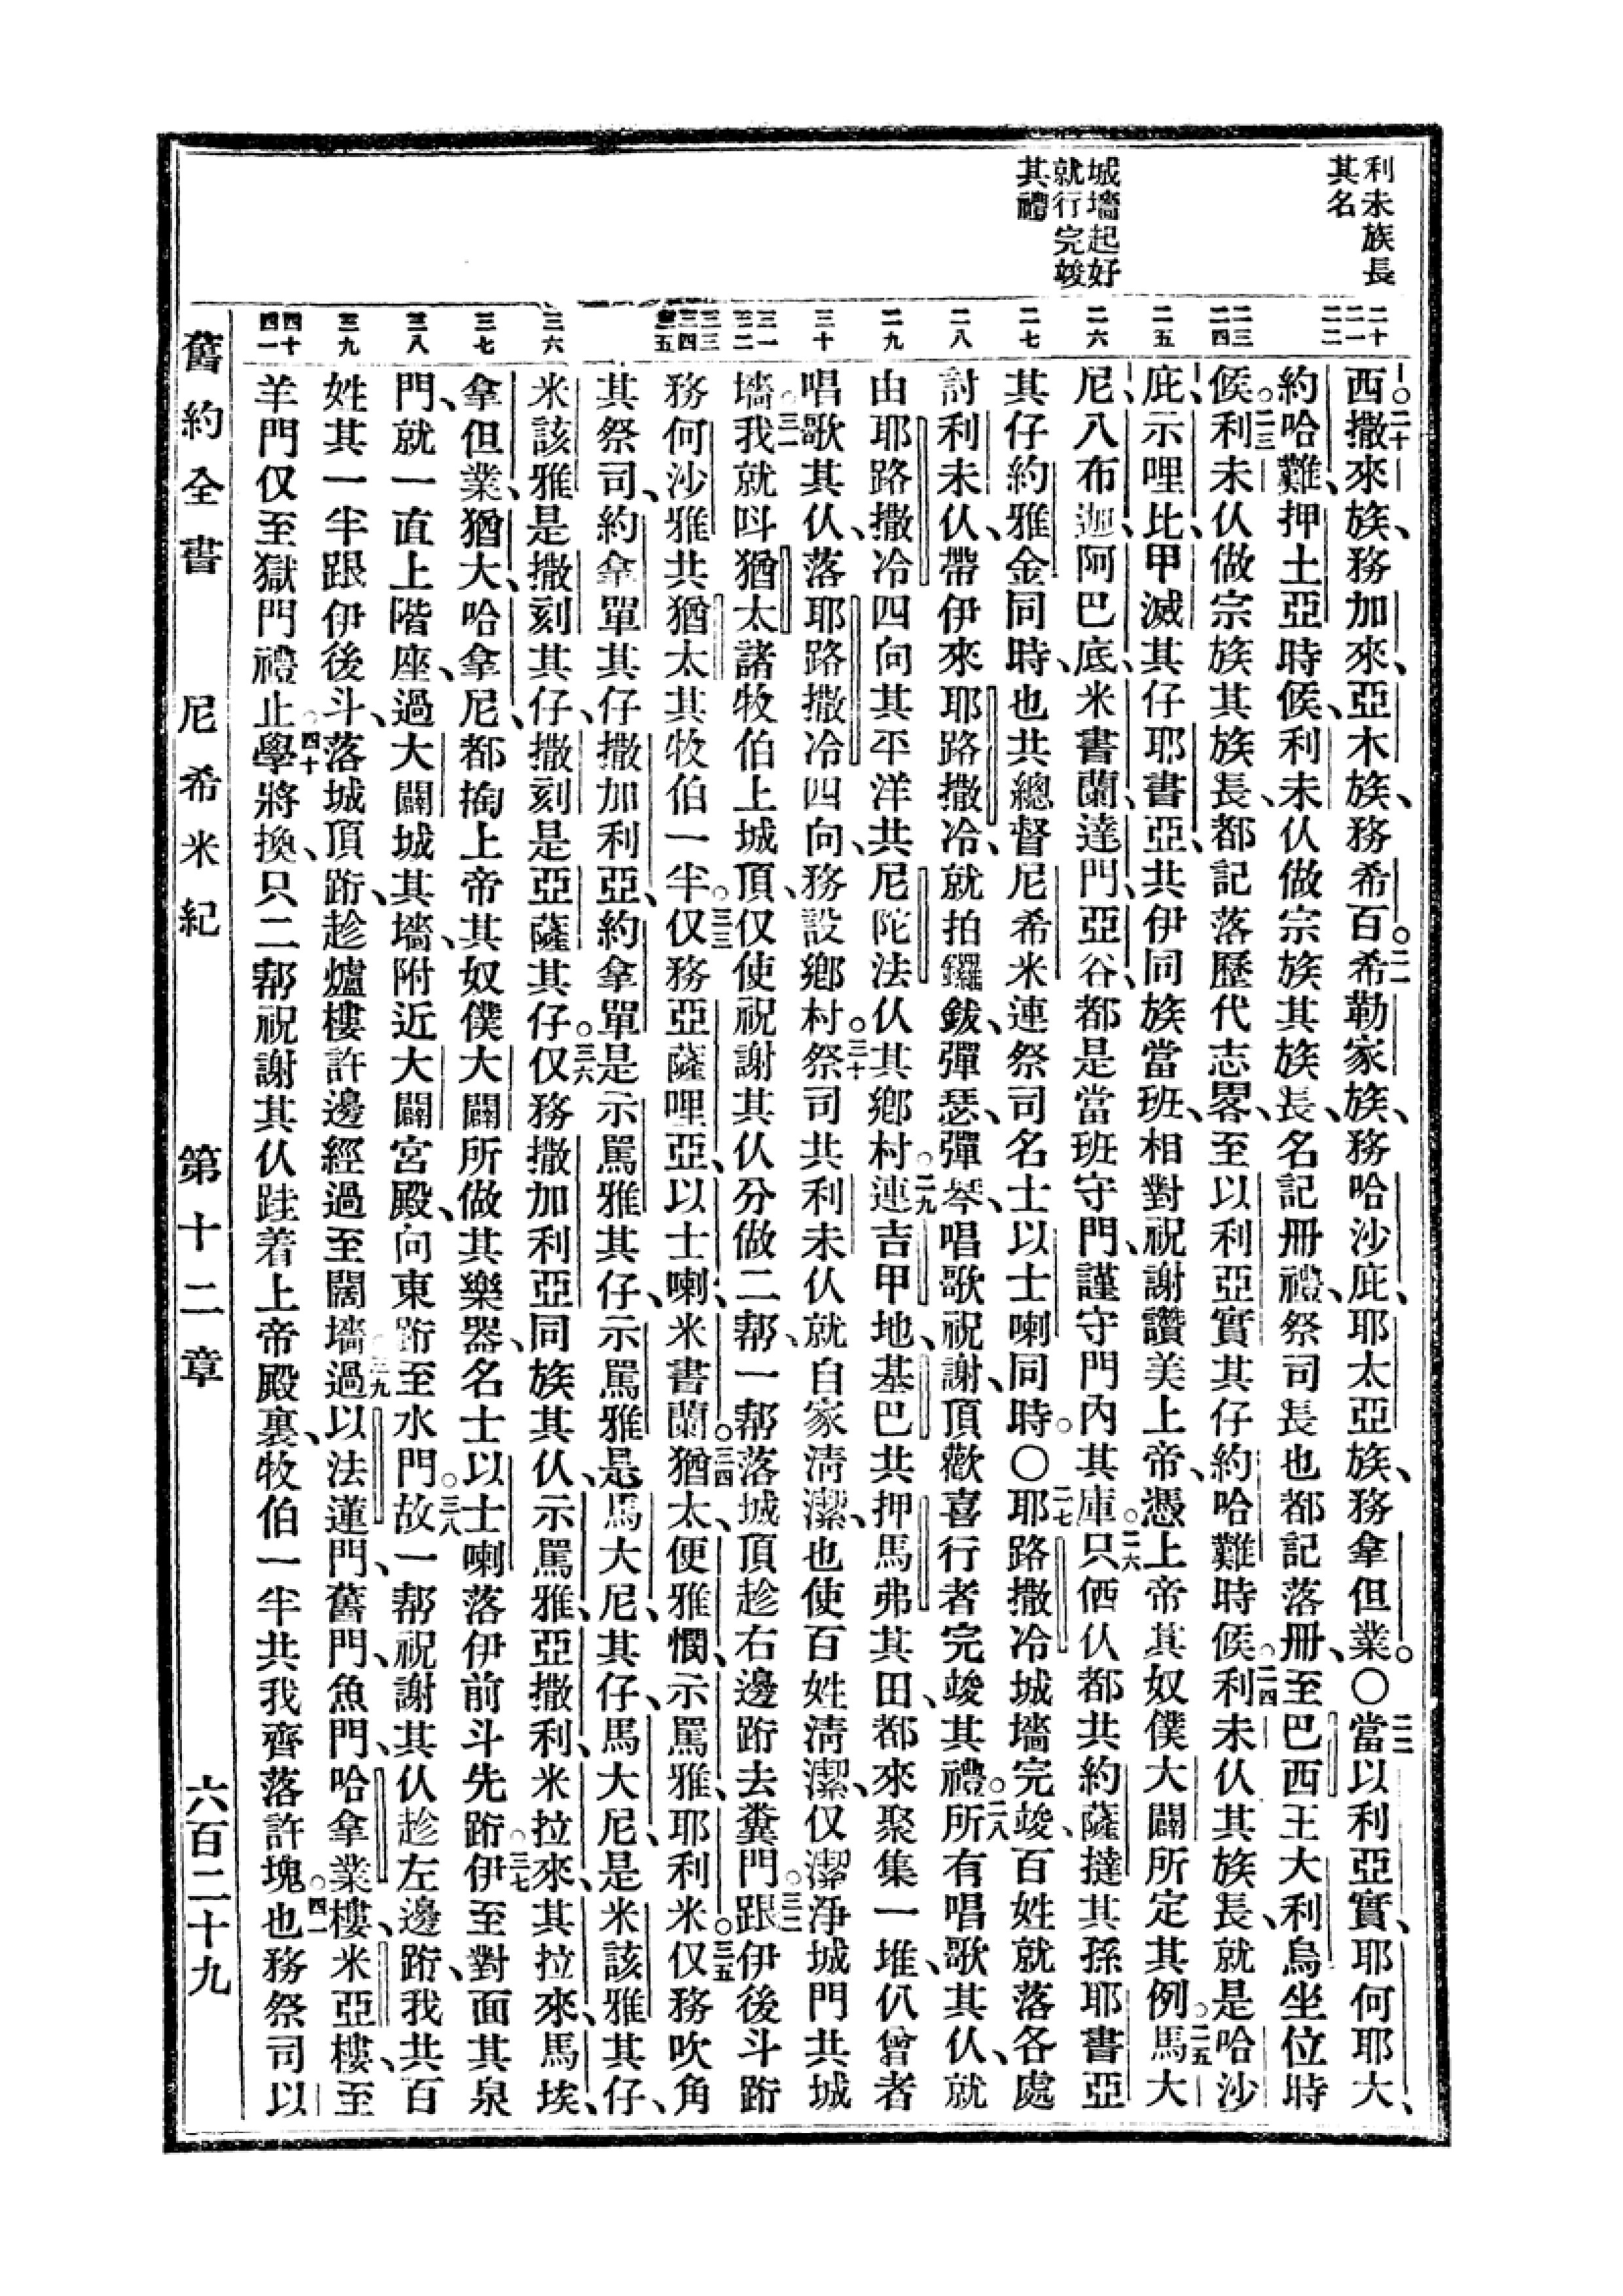 利未族長
其名
城墻起好
就行完竣
其禮
二十
二一
二二
二三
二四
二五
二六
二七
二八
二九
三十
三一
三二
三三
三四
三五
三六
三七
三八
三九
四十
四一
西。二十撒來族、務加來、亞木族、務希百。二一希勒家族、務哈沙庇、耶太亞族、務拿但業。〇二二當以利亞實、耶何耶大、
約哈難、押土亞時候、利未仈做宗族其族長、名記冊禮、祭司長也都記落冊、至巴西王大利烏坐位時
候。二三利未仈做宗族其族長、都記落歷代志畧、至以利亞實其仔約哈難時候。二四利未仈其族長、就是哈沙
庇、示哩比、甲滅其仔耶書亞、共伊同族當班、相對祝謝讚美上帝、憑上帝其奴僕大闢所定其例。二五馬大
尼、八布迦、阿巴底、米書蘭、達門、亞谷、都是當班守門、謹守門內其庫。二六只㐵仈都共約薩撻其孫耶書亞
其仔約雅金同時、也共總督尼希米連祭司名士以士喇同時。〇二七耶路撒冷城墻完竣、百姓就落各處
討利未仈、帶伊來耶路撒冷、就拍鑼鈸、彈瑟、彈琴、唱歌祝謝、頂歡喜行者完竣其禮。二八所有唱歌其仈、就
由耶路撒冷四向其平洋共尼陀法仈其鄉村。二九連吉甲地、基巴共押馬弗其田、都來聚集一堆、仈曾者
唱歌其仈、落耶路撒冷四向、務設鄉村。三十祭司共利未仈就自家清潔、也使百姓清潔、仅潔淨城門共城
墻。三一我就呌猶太諸牧伯上城頂、仅使祝謝其仈分做二帮、一帮落城頂趁右邊跨去糞門。三二跟伊後斗跨
務何沙雅共猶太其牧伯一半。三三仅務亞薩哩亞、以士喇、米書蘭。三四猶太、便雅憫、示罵雅、耶利米。三五仅務吹角
其祭司、約拿單其仔撒加利亞、約拿單是示罵雅其仔、示罵雅是馬大尼、其仔、馬大尼、是米該雅其仔、
米該雅是撒刻其仔、撒刻是亞薩其仔。三六仅務撒加利亞同族其仈、示罵雅、亞撒利、米拉來、其拉來、馬埃、
拿但業、猶大、哈拿尼、都掏上帝其奴僕大闢所做其樂器、名士以士喇落伊前斗先跨。三七伊至對面其泉
門、就一直上階座、過大闢城其墻、附近大闢宮殿、向東跨至水門。三八故一帮祝謝其仈趁左邊跨、我共百
姓其一半跟伊後斗、落城頂跨、趁爐樓許邊經過至闊墻。三九過以法蓮門、舊門、魚門、哈拿業樓、米亞樓、至
羊門仅至獄門禮止。四十學將換、只二帮祝謝其仈跬着上帝殿裏、牧伯一半共我齊落許塊。四一也務祭司以
舊約全書　尼希米紀　第十二章　六百二十九